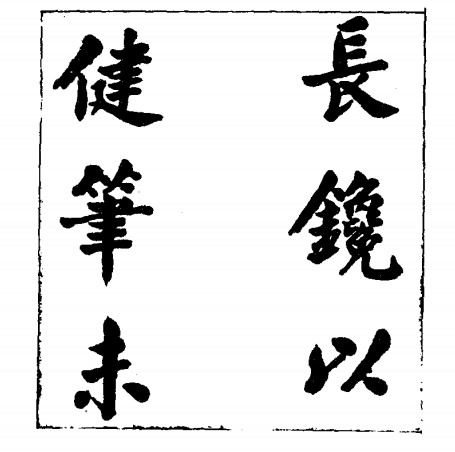 長鑱以
健筆未